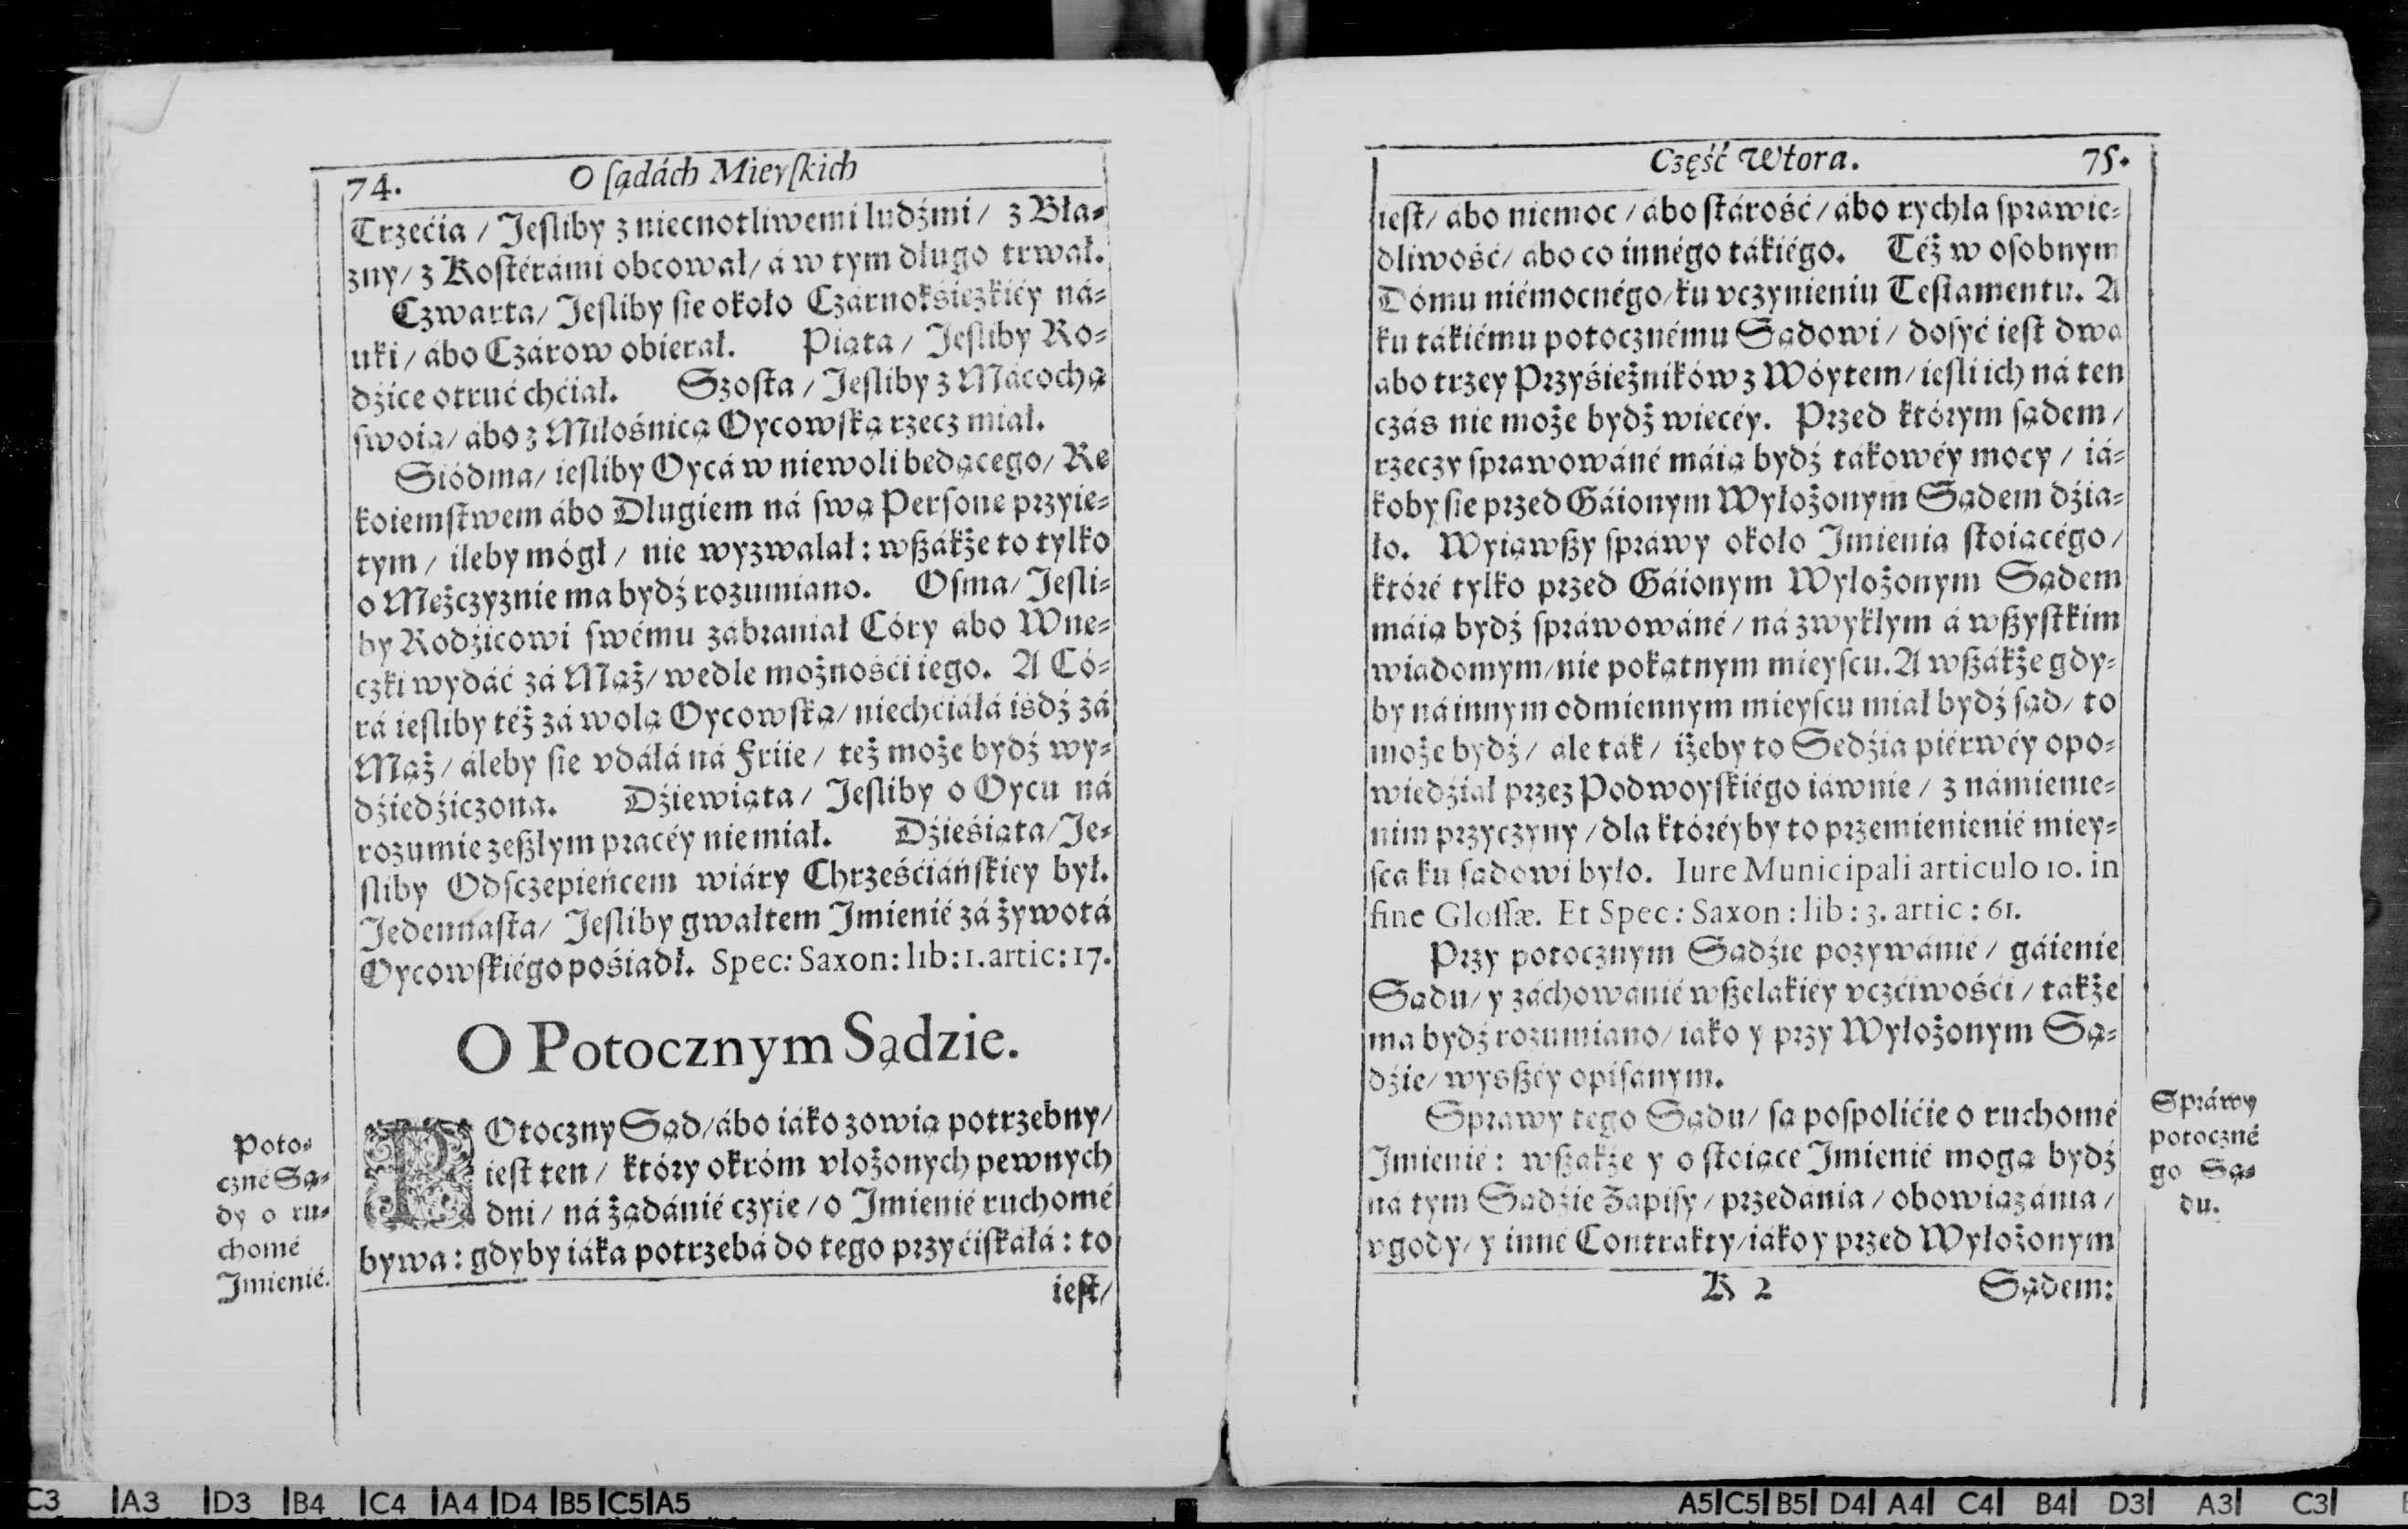 74. O ſądách Mieyſkich
Trzećia / Jeſliby z niecnotliwemi ludźmi / z Bła-
zny / z Koſtérámi obcował / á w tym długo trwał.
Czwarta / Jeſliby ſie około Czárnokśiezkiéy ná-
uki / ábo Czárow obierał. Piąta / Jeſliby Ro-
dźice otruć chćiał. Szoſta / Jeſliby z Mácochą
ſwoią / ábo z Miłośnicą Oycowſką rzecz miał.
Siódma / ieſliby Oycá w niewoli bedącego / Re
koiemſtwem ábo Dlugiem ná ſwą Perſone przyie-
tym / ileby mógł / nie wyzwalał: wßákże to tylko
o Meżczyznie ma bydź rozumiano. Oſma / Jeſli-
by Rodźicowi ſwému zábraniał Córy ábo Wne-
czki wydáć zá Mąż / wedle możnośći iego. A Có-
rá ieſliby téż zá wolą Oycowſką / niechćiáłá iśdź zá
Mąż / áleby ſie vdáłá ná Friie / też może bydź wy-
dźiedźiczona. Dźiewiąta / Jeſliby o Oycu ná
rozumie zeßłym pracéy nie miał. Dźieśiąta / Je-
ſliby Odſczepieńcem wiáry Chrześćiáńſkiéy był.
Jedennaſta / Jeſliby gwałtem Jmienié zá żywotá
Oycowſkiégo pośiadł. Spec: Saxon: lib: 1. artic: 17.
O Potocznym Sądzie.
Poto-
czné Są-
dy o ru-
chomé
Jmienié.
POtoczny Sąd / ábo iáko zowią potrzebny /
ieſt ten / który okróm vłożonych pewnych
dni / ná żądánié czyie / o Jmienié ruchomé
bywa: gdyby iáka potrzebá do tego przyćiſkáłá: to
ieſt /
Część Wtora. 75.
ieſt / abo niemoc / ábo ſtárość / ábo rychła ſprawie-
dliwość / abo co innégo tákiégo. Téż w oſobnym
Dómu niémocnégo / ku vczynieniu Teſtamentu. A
ku tákiému potocznému Sądowi / doſyć ieſt dwa
abo trzey Przyśieżników z Wóytem / ieſli ich ná ten
czás nie może bydź wiecéy. Przed którym ſądem /
rzeczy ſprawowáné máią bydź tákowéy mocy / iá-
koby ſie przed Gáionym Wyłożonym Sądem dźia-
ło. Wyiąwßy ſpráwy około Jmienia ſtoiącégo /
któré tylko przed Gáionym Wyłożonym Sądem
máią bydź ſpráwowáné / ná zwykłym á wßyſtkim
wiadomym / nie pokątnym mieyſcu. A wßákże gdy-
by ná innym odmiennym mieyſcu miał bydź ſąd / to
może bydź / ale ták / iżeby to Sedźia piérwéy opo-
wiedźiał przez Podwoyſkiégo iáwnie / z námienie-
nim przyczyny / dla któréyby to przemienienié miey-
ſca ku ſądowi było. Iure Municipali articulo 10. in
fine Gloſſæ. Et Spec: Saxon: lib: 3. artic: 61.
Przy potocznym Sądźie pozywánié / gáienie
Sądu / y záchowánié wßelakiéy vczćiwośći / tákże
ma bydź rozumiano / iako y przy Wyłożonym Są-
dźie / wysßéy opiſanym.
Sprawy tego Sądu / ſą poſpolićie o ruchomé
Jmienié: wßakże y o ſtoiącé Jmienié mogą bydź
ná tym Sądźie Zapiſy / przedánia / obowiązánia /
vgody / y inné Contrakty / iáko y przed Wyłożonym
Spráwy
potoczné
go Są-
du.
K 2 Sądem:
C3 A3 D3 B4 C4 A4 D4 B5 C5 A5
A5 C5 B5 D4 A4 C4 B4 D3 A3 C3